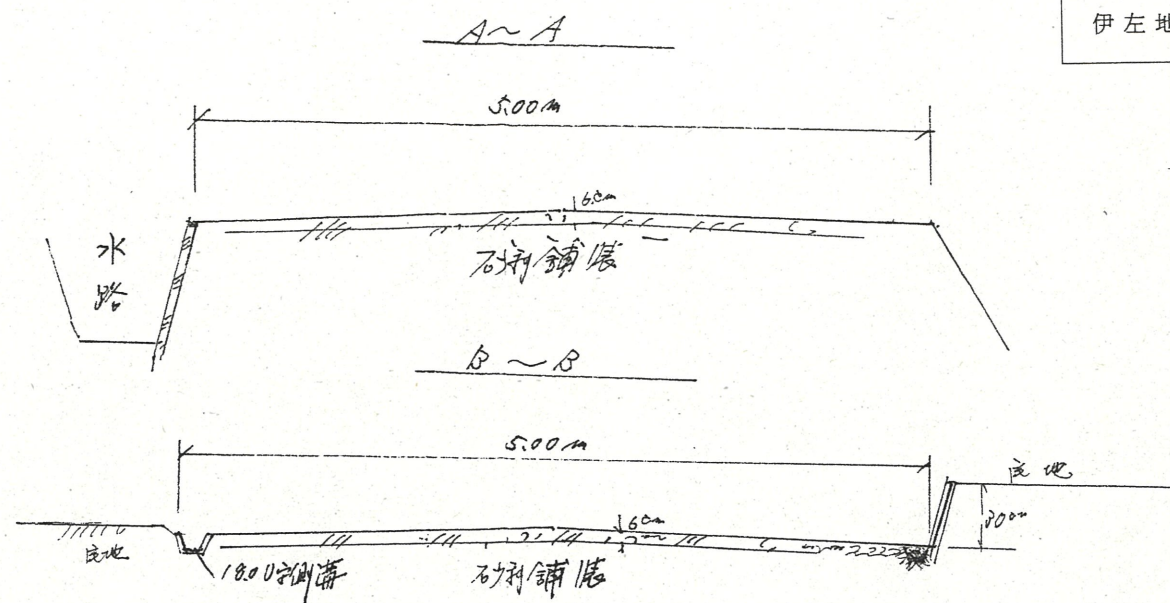 伊左地
A～A
5.00m
6cm
水路
砂利舗装
B～B
5.00m
宅地
6cm
30cm
宅地
180U字側溝
砂利舗装